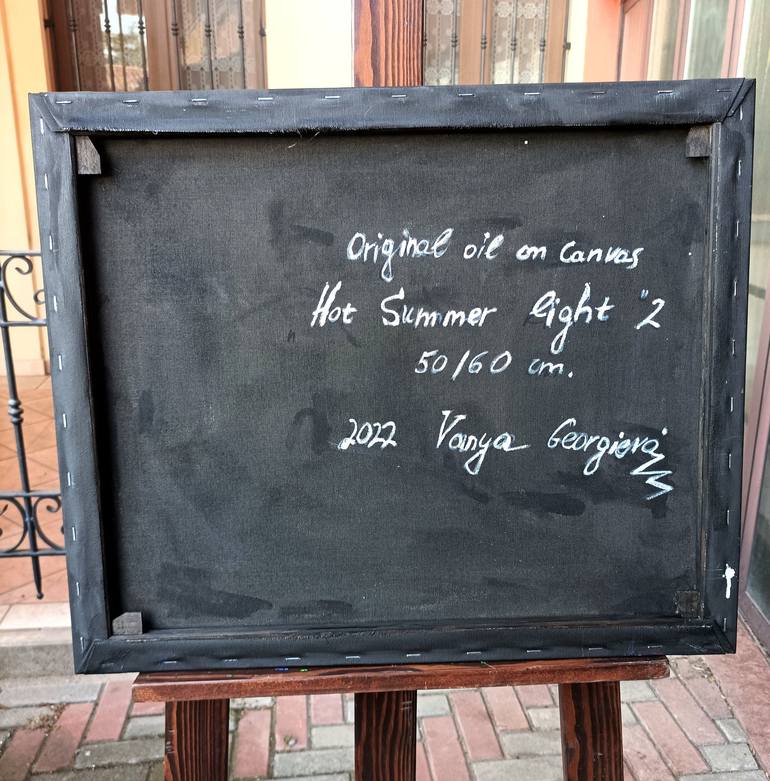 Original oil on canvas
Hot Summer light "2
50/60 cm.
2022 Vanya Georgieva